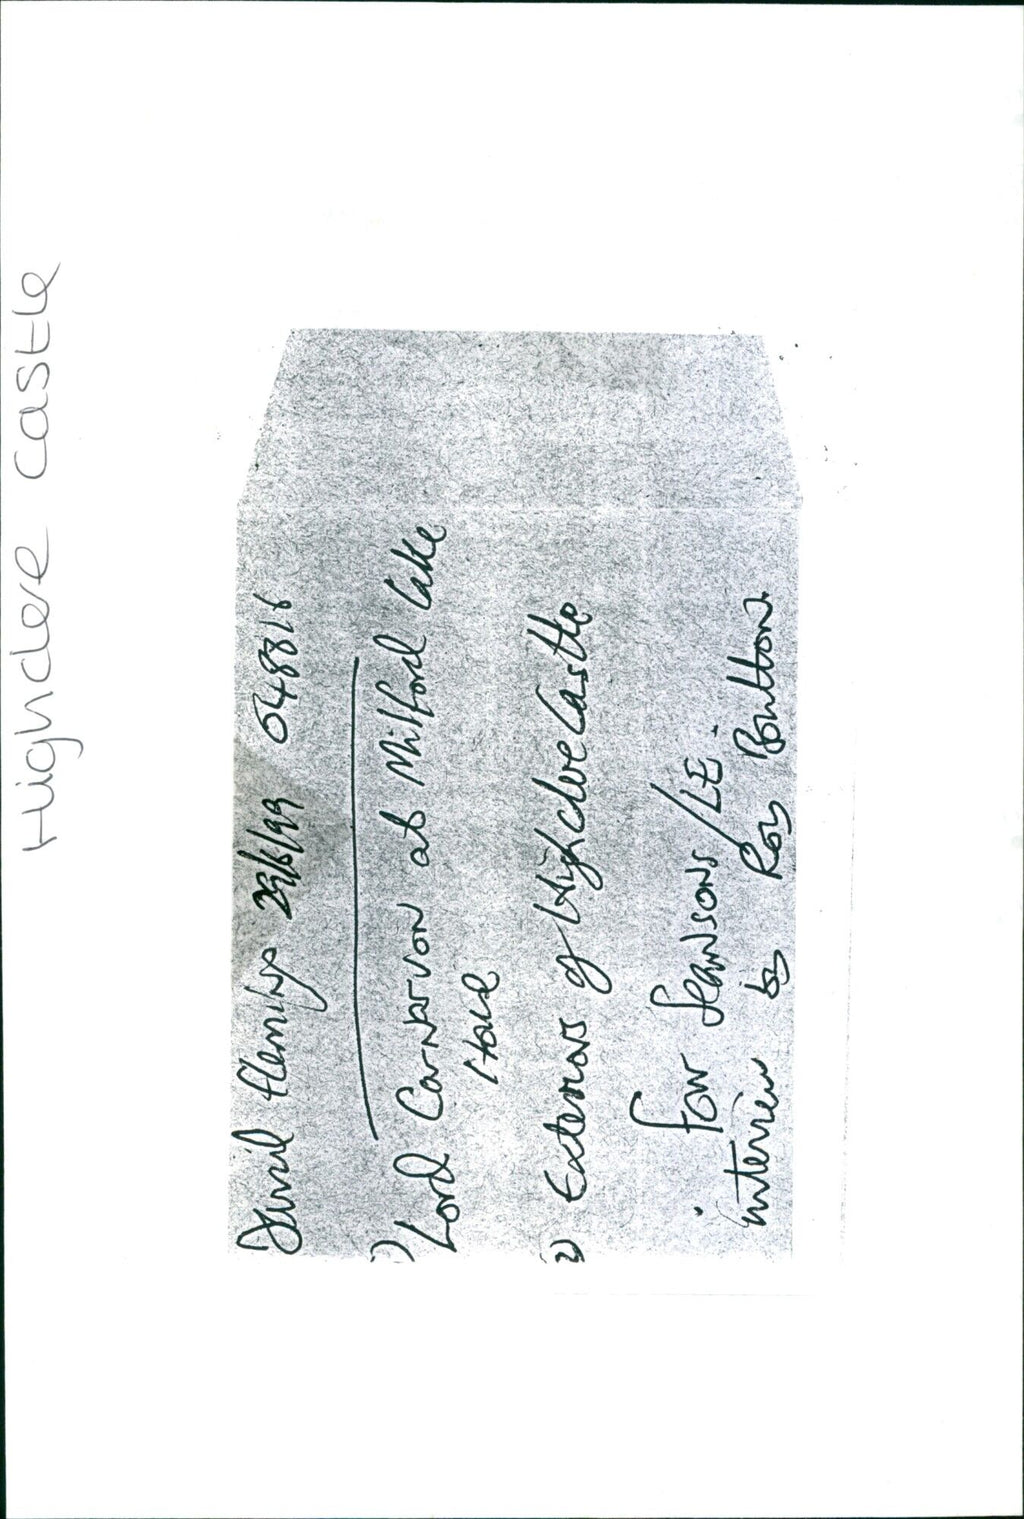 Highclere Castle
David Fleming 29/6/99 048816
1) Lord Carnarvon at Milford Lake
2) Exteriors of Highclere Castle
• For /LE.
interview by Roy Boulton.